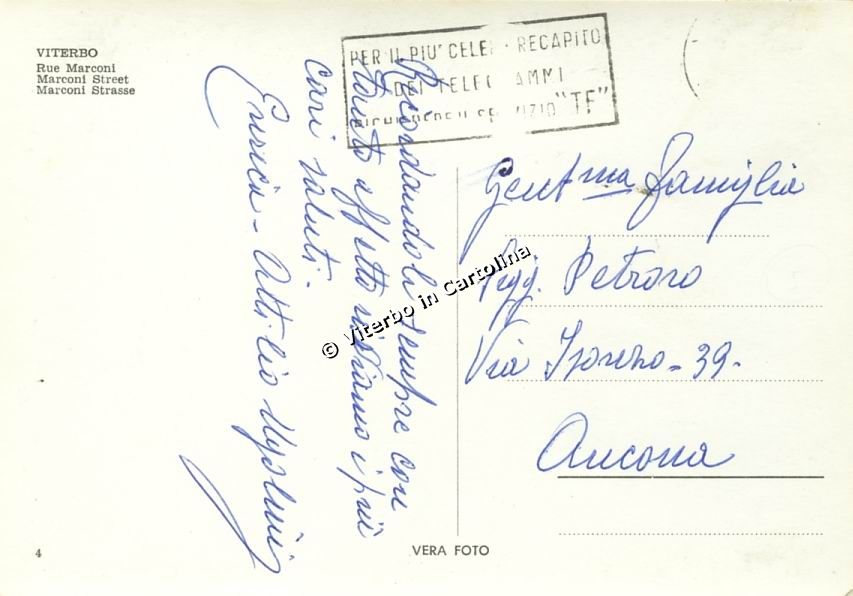 VITERBO
Rue Marconi
Marconi Street
Marconi Strasse
PER IL PIU' CELE RECAPITO
DEI TELEG AMMI
"TF"
Ricordandoli sempre con
tanto affetto inviamo i più
cari saluti.
Enrica - Attilio Ugolini
Gent.ma famiglia
Petroro
Via Isonzo - 39 -
Ancona
© Viterbo in Cartolina
4
VERA FOTO